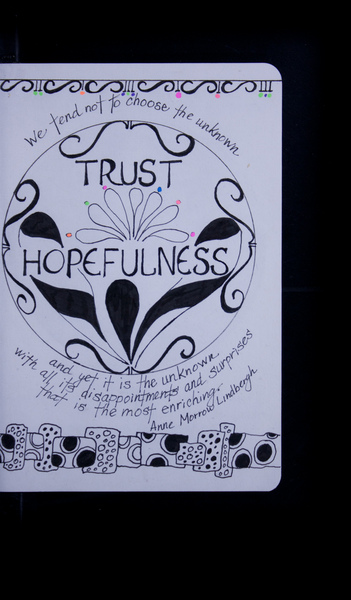 We tend not to choose the unknown
TRUST
HOPEFULNESS
and yet it is the unknown
with all it's disappointments and surprises
that is the most enriching.
Anne Morrow Lindbergh